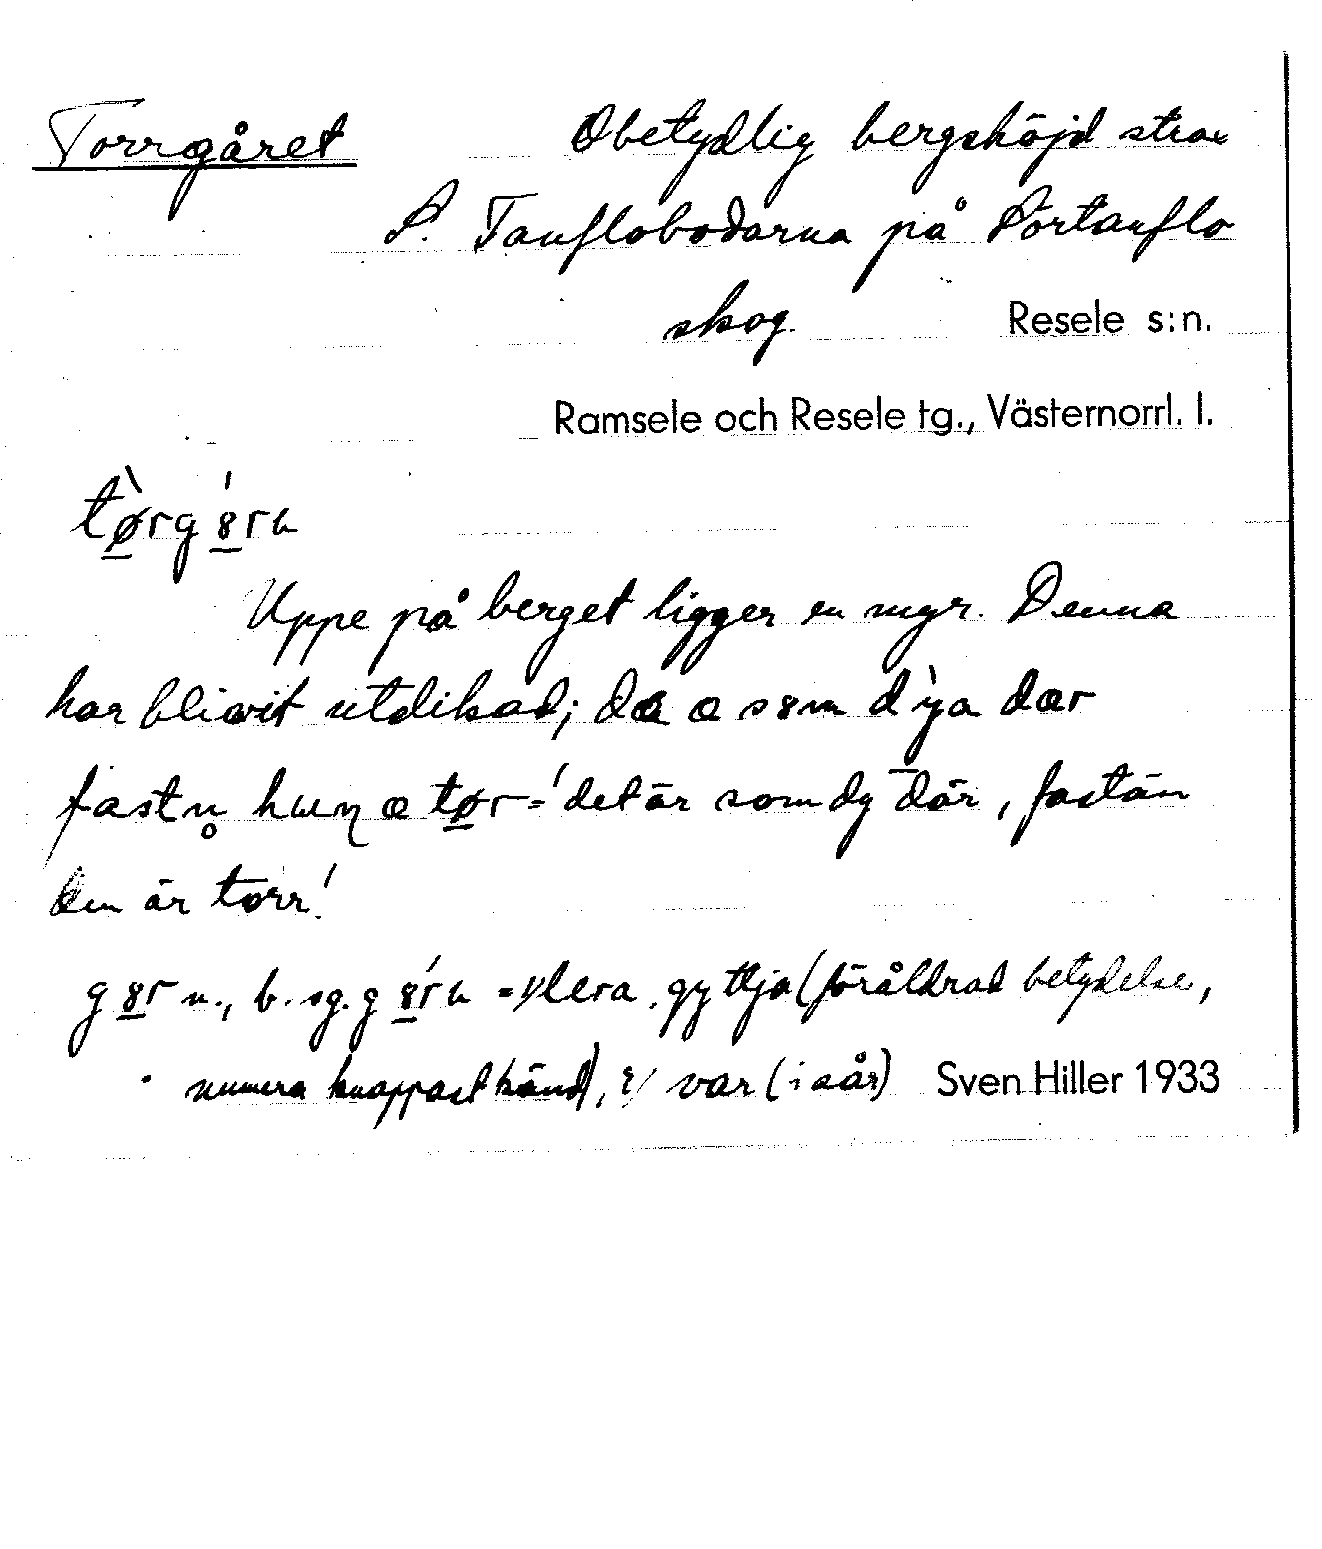 Torrgåret Obetydlig bergshöjd strax
S. Tanflobodarna på Sörtanflo
skog. Resele s:n.
Ramsele och Resele tg., Västernorrl. l.
Uppe på berget ligger en myr. Denna
har blivit utdikad; dæ æ s8m dỳa dær
fastn̥ hæŋ æ tør = 'det är som dy där, fastän
den är torr!
g8r n., b. sg. g8́rɩ = 1/ lera, gyttja (föråldrad betydelse,
numera knappast känd), 2/ var (i sår) Sven Hiller 1933